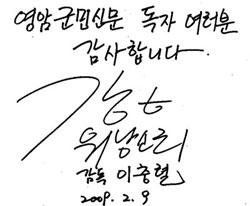 영암군민신문 독자 여러분
감사합니다.
워낭소리
감독 이충렬
2009. 2. 9